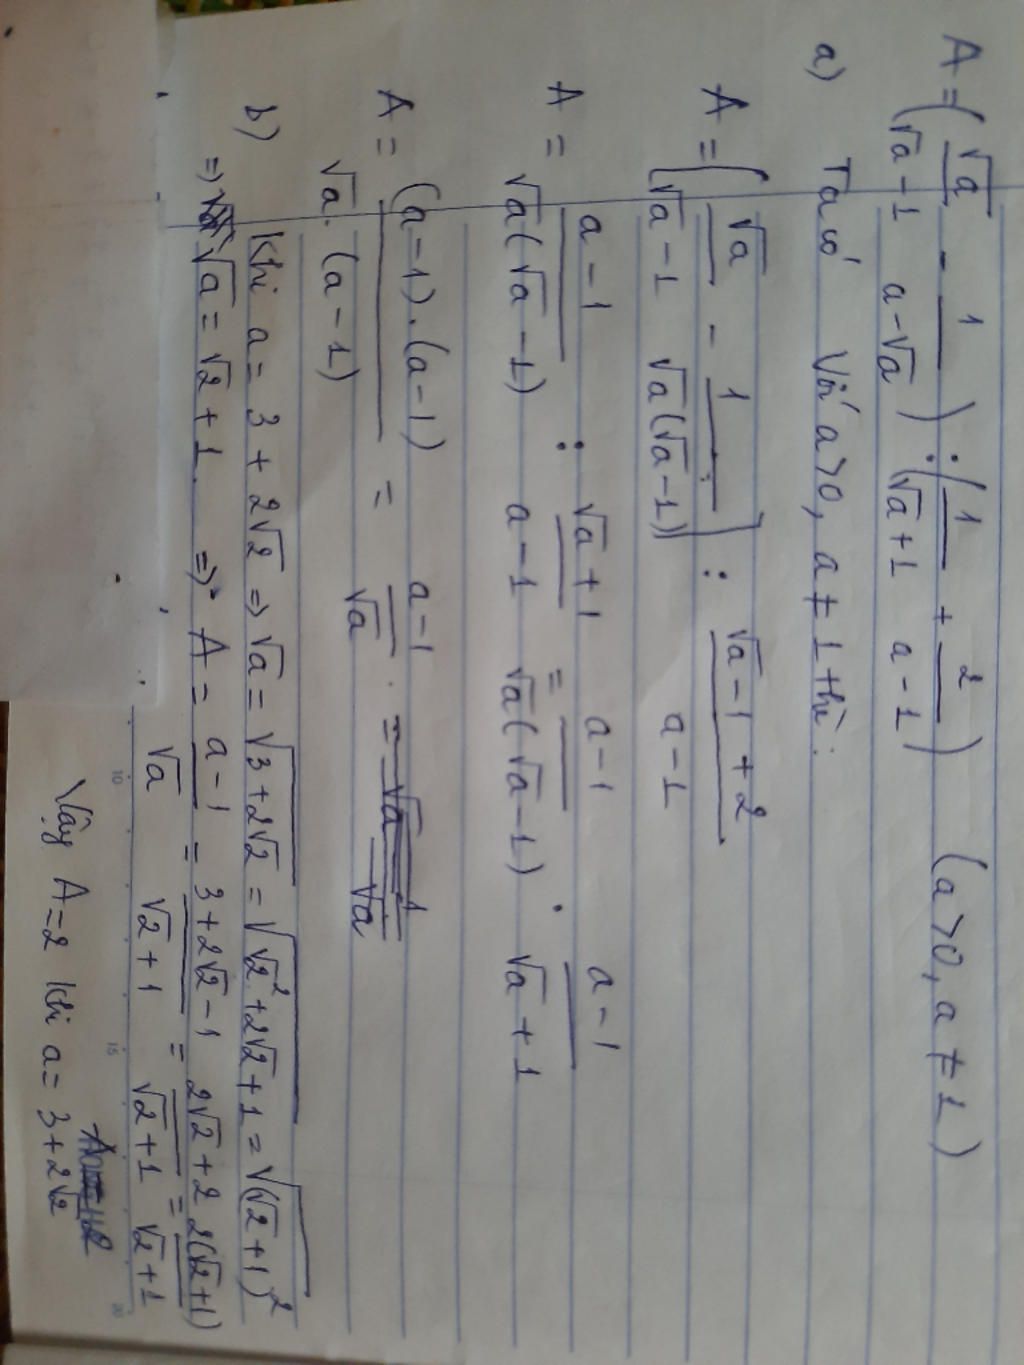 A = (√a/(√a-1) - 1/(a-√a)) : (1/(√a+1) + 2/(a-1)) (a>0, a≠1)
a) Ta có Với a>0, a≠1 thì:
A = (√a/(√a-1) - 1/(√a(√a-1))) : (√a-1+2)/(a-1)
A = (a-1)/(√a(√a-1)) : (√a+1)/(a-1) = (a-1)/(√a(√a-1)) . (a-1)/(√a+1)
A = ((a-1).(a-1))/(√a.(a-1)) = (a-1)/√a
b) Khi a = 3+2√2 => √a = √(3+2√2) = √(√2²+2√2+1) = √((√2+1)²
=> √a = √2+1 => A = (a-1)/√a = (3+2√2-1)/(√2+1) = (2√2+2)/(√2+1) = 2(√2+1)/(√2+1)
Vậy A=2 khi a = 3+2√2
10 15 20